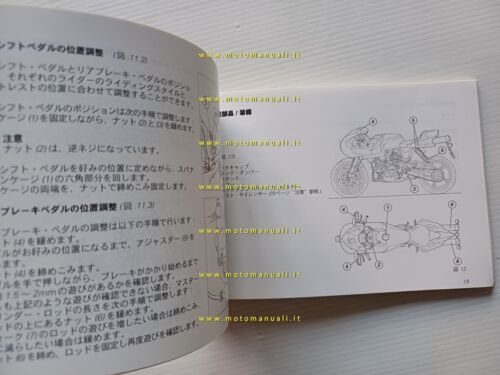 シフトペダルの位置調整 (図:11.2)
シフト・ペダルとリアブレーキ・ペダルのポジショ
、それぞれのライダーのライディングスタイルと
トレストの位置に合わせて調整することができます。
シフト・ペダルのポジションは次の手順で調整します:
ケージ (1)を固定しながら、ナット (2) と (3) を緩めます。
注意
ナット (2) は、逆ネジになっています。
シフト・ペダルを好みの位置に定めながら、スパナ
ケージ (1) の六角部分を回します。
ケージの両端を、ナットで締めこみ固定します。
ブレーキペダルの位置調整 (図:11.3)
ブレーキ・ペダルの調整は以下の手順で行います:
ット (4) を緩めます。
がお好みの位置になるまで、アジャスター (5) を
ます。
ト (4) を締めこみます。
ダルを手で押しながら、ブレーキがかかり始めるまで
1.5 〜 2mm の遊びがあるかを確認します。
も上記のような遊びが確認できない場合、マスター
ンダー・ロッドの長さを次の手順で調整します:
ロッドの上にあるナット (6) を緩めます。
ォーク (7) のロッドの遊びを増したい場合は締めこみ、
に減らしたい場合は緩めます。
ット (6) を締め、ロッドを固定し再度遊びを確認します。
部品 / 装備
図.12)
クキャップ
リング・ダンパー
スタンド
スト・サイレンサー (29ページ "注意" 参照)
5
2
3
6
4
1
6
6
図 12
19
www.motomanuali.it
www.motomanuali.it
www.motomanuali.it
www.motomanuali.it
www.motomanuali.it